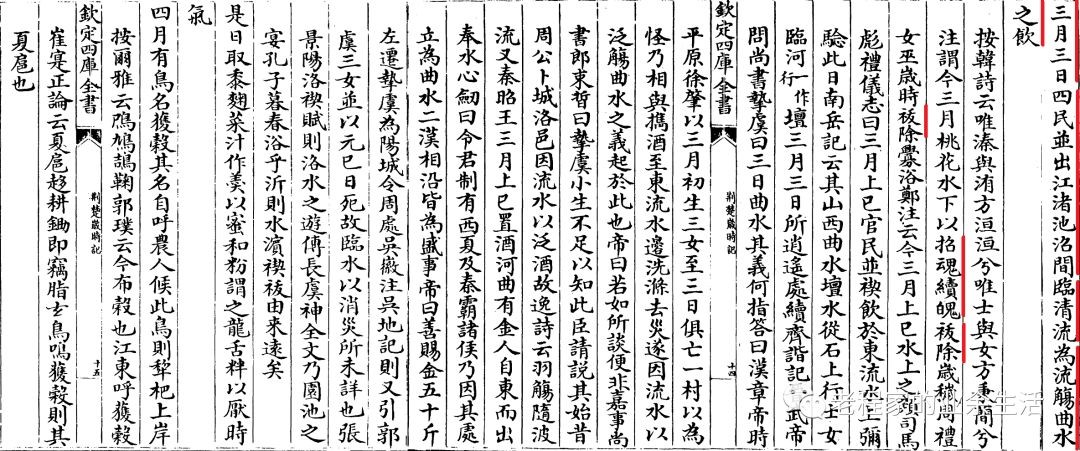 三月三日四民並出江渚池沼間臨清流為流觴曲水
之飲
按韓詩云唯溱與洧方洹洹兮唯士與女方秉蕑兮
注謂今三月桃花水下以招魂續魄祓除歲穢周禮
女巫歲時祓除釁浴鄭注云今三月上巳水上之類司馬
彪禮儀志曰三月上巳官民並禊飲於東流水上彌
驗此日南岳記云其山西曲水壇水從石上行士女
臨河一作行壇三月三日所逍遙處續齊諧記武帝
問尚書摯虞曰三日曲水其義何指答曰漢章帝時
欽定四庫全書 荊楚歲時記 十四
平原徐肇以三月初生三女至三日俱亡一村以為
怪乃相與擕酒至東流水邊洗滌去災遂因流水以
泛觴曲水之義起於此也帝曰若如所談便非嘉事尚
書郎束晳曰摯虞小生不足以知此臣請說其始昔
周公卜城洛邑因流水以泛酒故逸詩云羽觴隨波
流又秦昭王三月上巳置酒河曲有金人自東而出
奉水心劒曰令君制有西夏及秦霸諸侯乃因其處
立為曲水二漢相沿皆為盛事帝曰善賜金五十斤
左遷摯虞為陽城令周處吳徽注吳地記則又引郭
虞三女並以元巳日死故臨水以消災所未詳也張
景陽洛禊賦則洛水之遊傅長虞神全文乃園池之
宴孔子暮春浴乎沂則水濵禊祓由來遠矣
是日取黍麴菜汁作羹以蜜和粉謂之龍舌䉽以厭時
氣
四月有鳥名獲穀其名自呼農人候此鳥則犂杷上岸
按爾雅云鳲鳩鴶鞠郭璞云今布穀也江東呼獲穀
崔寔正論云夏扈趍耕鋤即竊脂玄鳥鳴獲穀則其
夏扈也
欽定四庫全書 荊楚歲時記 十五